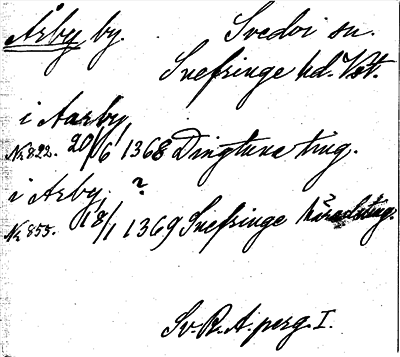 Åby by. Svedvi sn.
Snefringe hd. Vstm.
i Aarby
Nr 822. 20/6 1368 Dingtuna ting.
i Arby. ?
Nr 855. 18/1 1369 Snefringe häradsting.
Sv. R. A. perg. I.